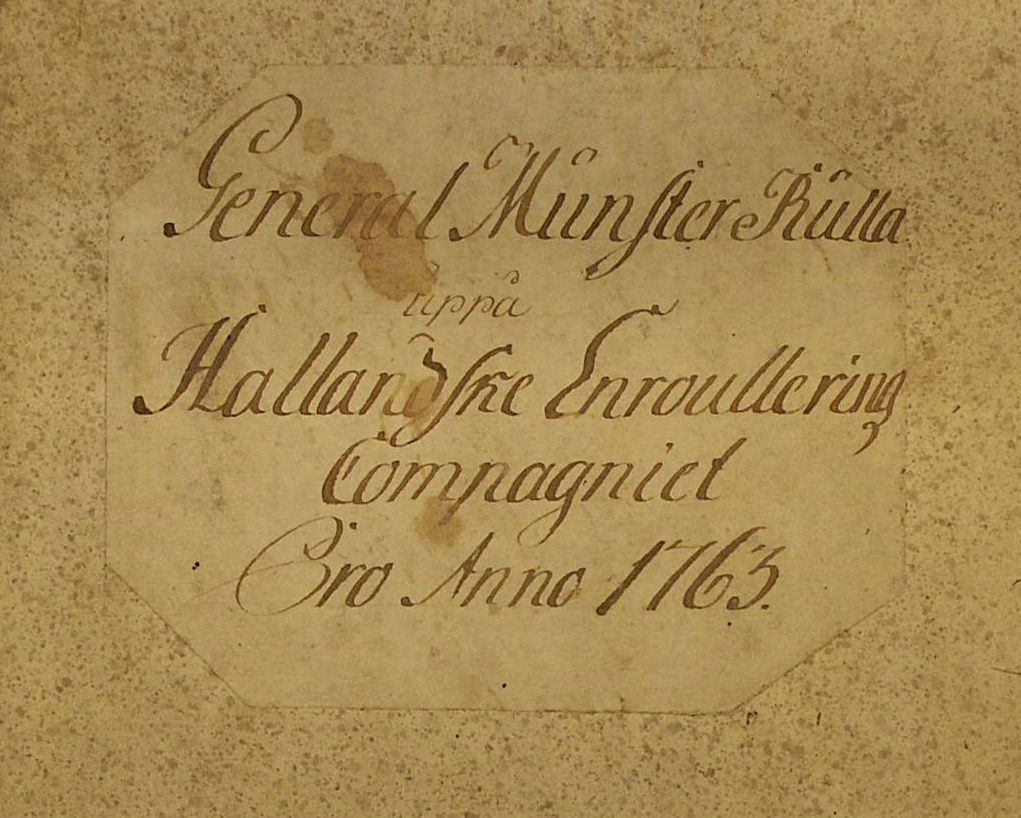 General Münster Rulla
uppå
Hallandske Enroullerings
Compagniet
Pro Anno 1763.